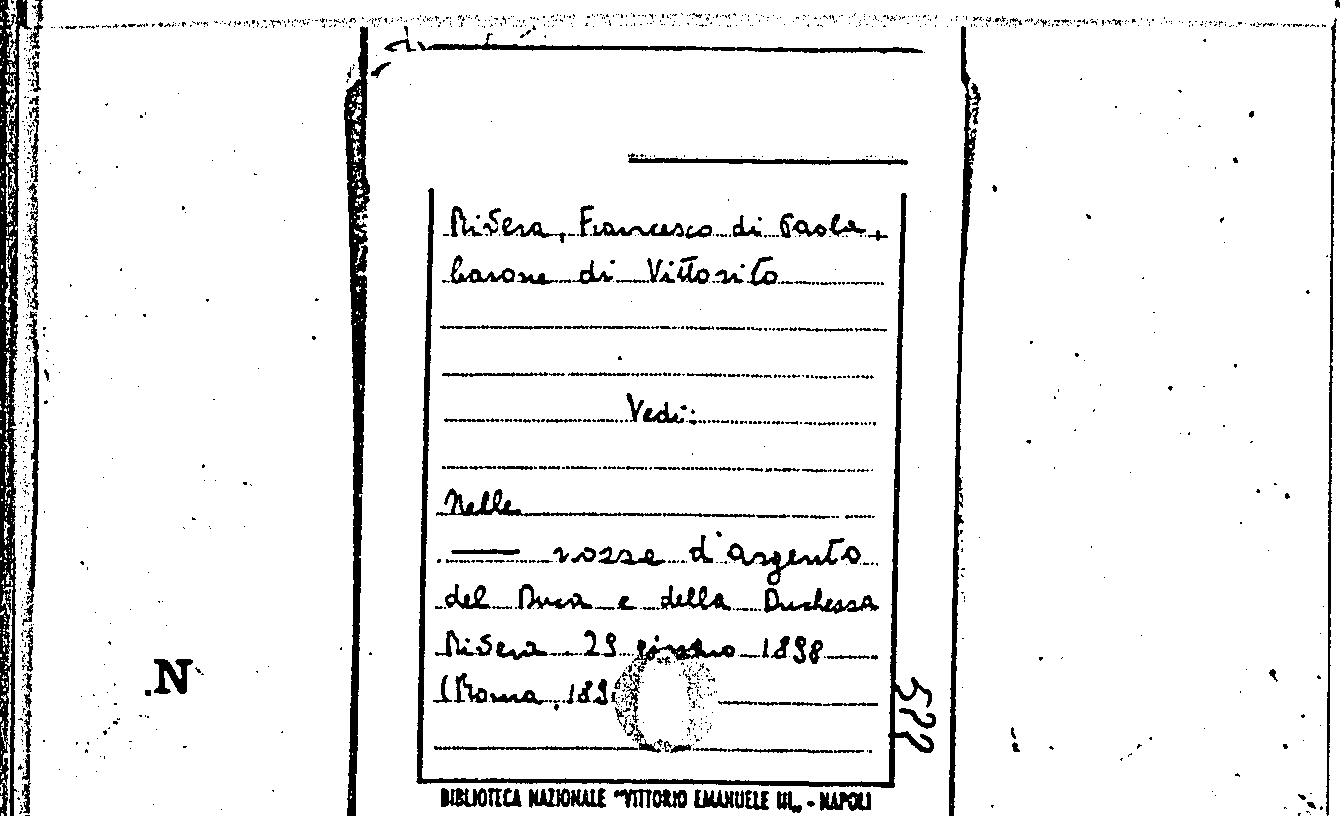 Rivera, Francesco di Paola,
barone di Vittorito
Vedi:
Nelle
—— nozze d'argento
del Duca e della Duchessa
Rivera 29 giugno 1898
(Roma, 189
522
.N
BIBLIOTECA NAZIONALE "VITTORIO EMANUELE III„ - NAPOLI